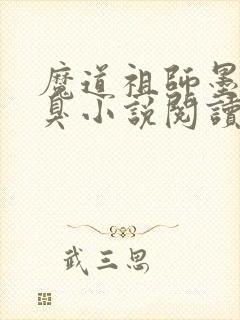 魔道祖師墨
臭小説閱讀
武三思